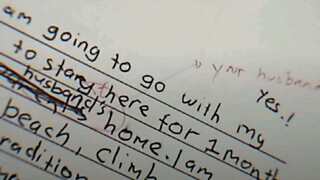 am going to go with my
» your husban
Yes.!
to stay there for 1 month
husband's home. I am
beach, climb
radition